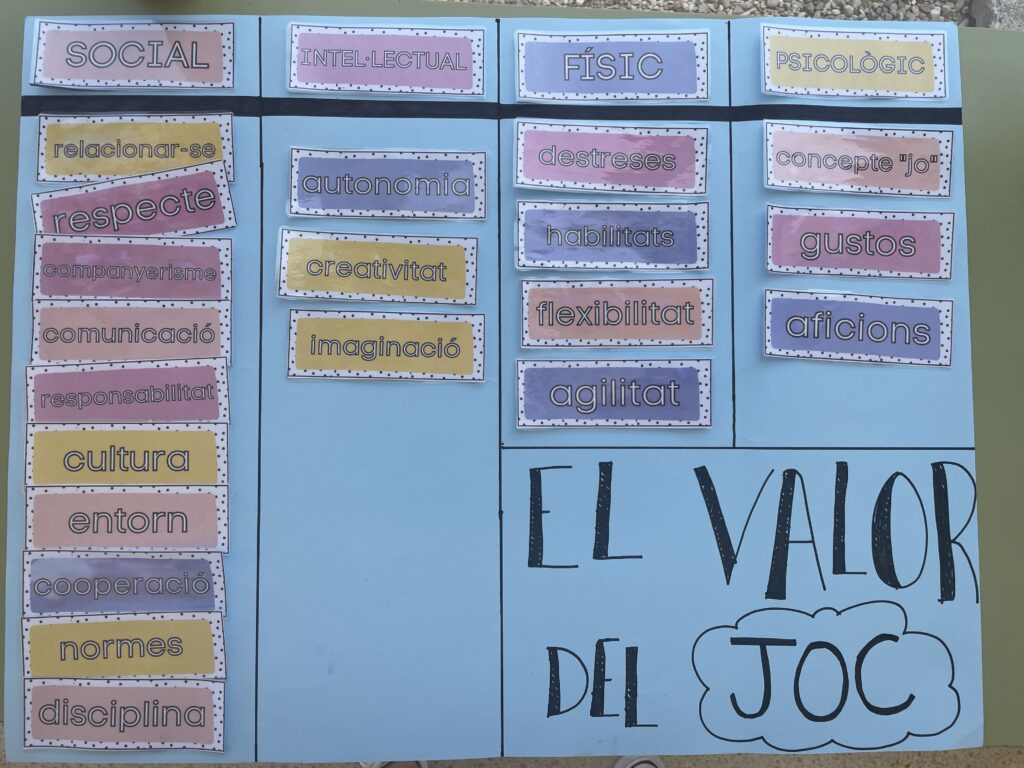 SOCIAL
relacionar-se
respecte
companyerisme
comunicació
responsabilitat
cultura
entorn
cooperació
normes
disciplina
INTEL·LECTUAL
autonomia
creativitat
imaginació
FÍSIC
destreses
habilitats
flexibilitat
agilitat
PSICOLÒGIC
concepte "jo"
gustos
aficions
EL VALOR
DEL JOC